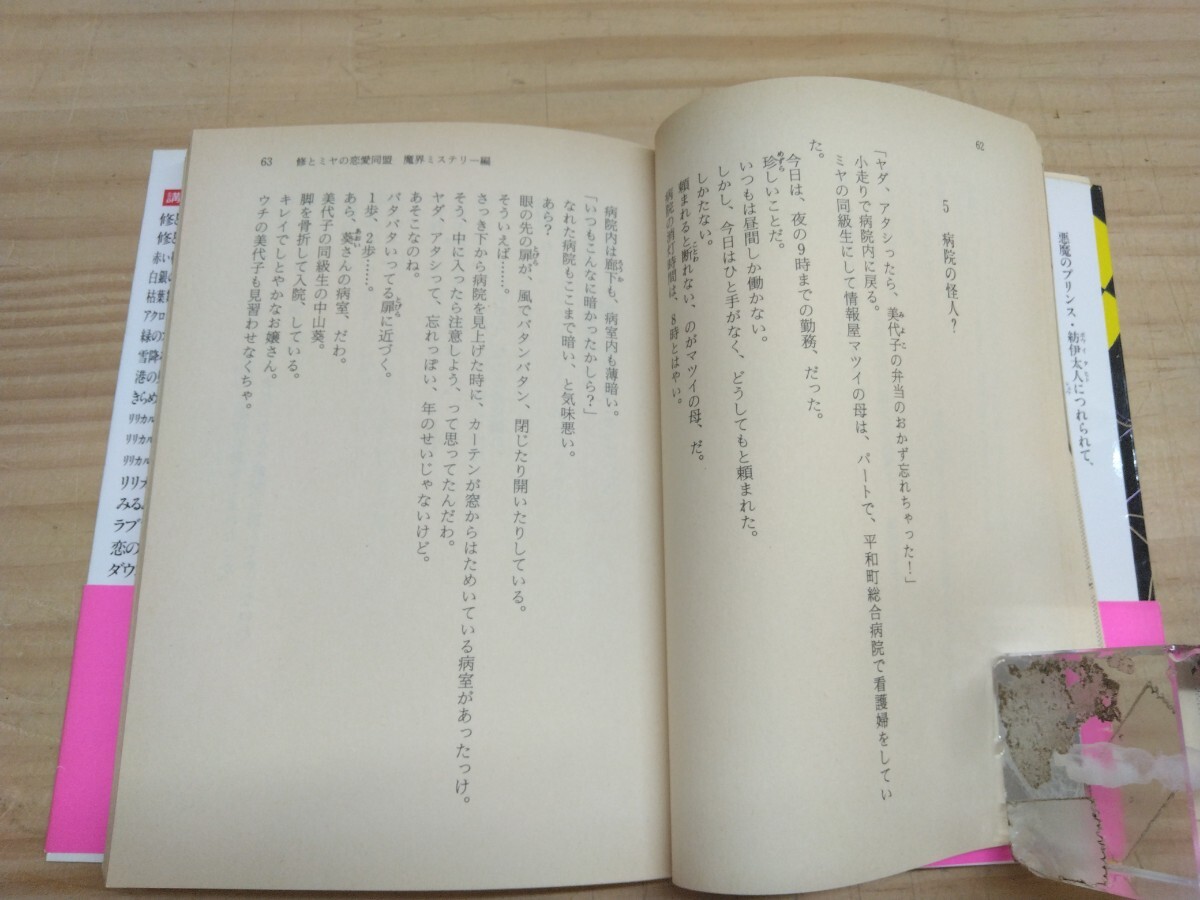 悪魔のプリンス・紡伊太人につれられて、
62
5 病院の怪人?
「ヤダ、アタシったら、美代子の弁当のおかず忘れちゃった!」
小走りで病院内に戻る。
ミヤの同級生にして情報屋マツイの母は、パートで、平和町総合病院で看護婦をしてい
た。
今日は、夜の9時までの勤務、だった。
珍しいことだ。
いつもは昼間しか働かない。
しかし、今日はひと手がなく、どうしてもと頼まれた。
しかたない。
頼まれると断れない、のがマツイの母、だ。
病院の消灯時間は、8時とはやい。
63 修とミヤの恋愛同盟 魔界ミステリー編
病院内は廊下も、病室内も薄暗い。
「いつもこんなに暗かったかしら?」
なれた病院もここまで暗い、と気味悪い。
あら?
眼の先の扉が、風でバタンバタン、閉じたり開いたりしている。
そういえば……。
さっき下から病院を見上げた時に、カーテンが窓からはためいている病室があったっけ。
そう、中に入ったら注意しよう、って思ってたんだわ。
ヤダ、アタシって、忘れっぽい、年のせいじゃないけど。
あそこなのね。
バタバタいってる扉に近づく。
1歩、2歩……。
あら、葵さんの病室、だわ。
美代子の同級生の中山葵。
脚を骨折して入院、している。
キレイでしとやかなお嬢さん。
ウチの美代子も見習わせなくちゃ。
講
修と
修と
赤い
白銀
枯葉
アクロ
緑の
雪降
港の
きらめ
リリカル
リリカル
リリカル
リリフ
みる
ラブ
恋の
ダウ